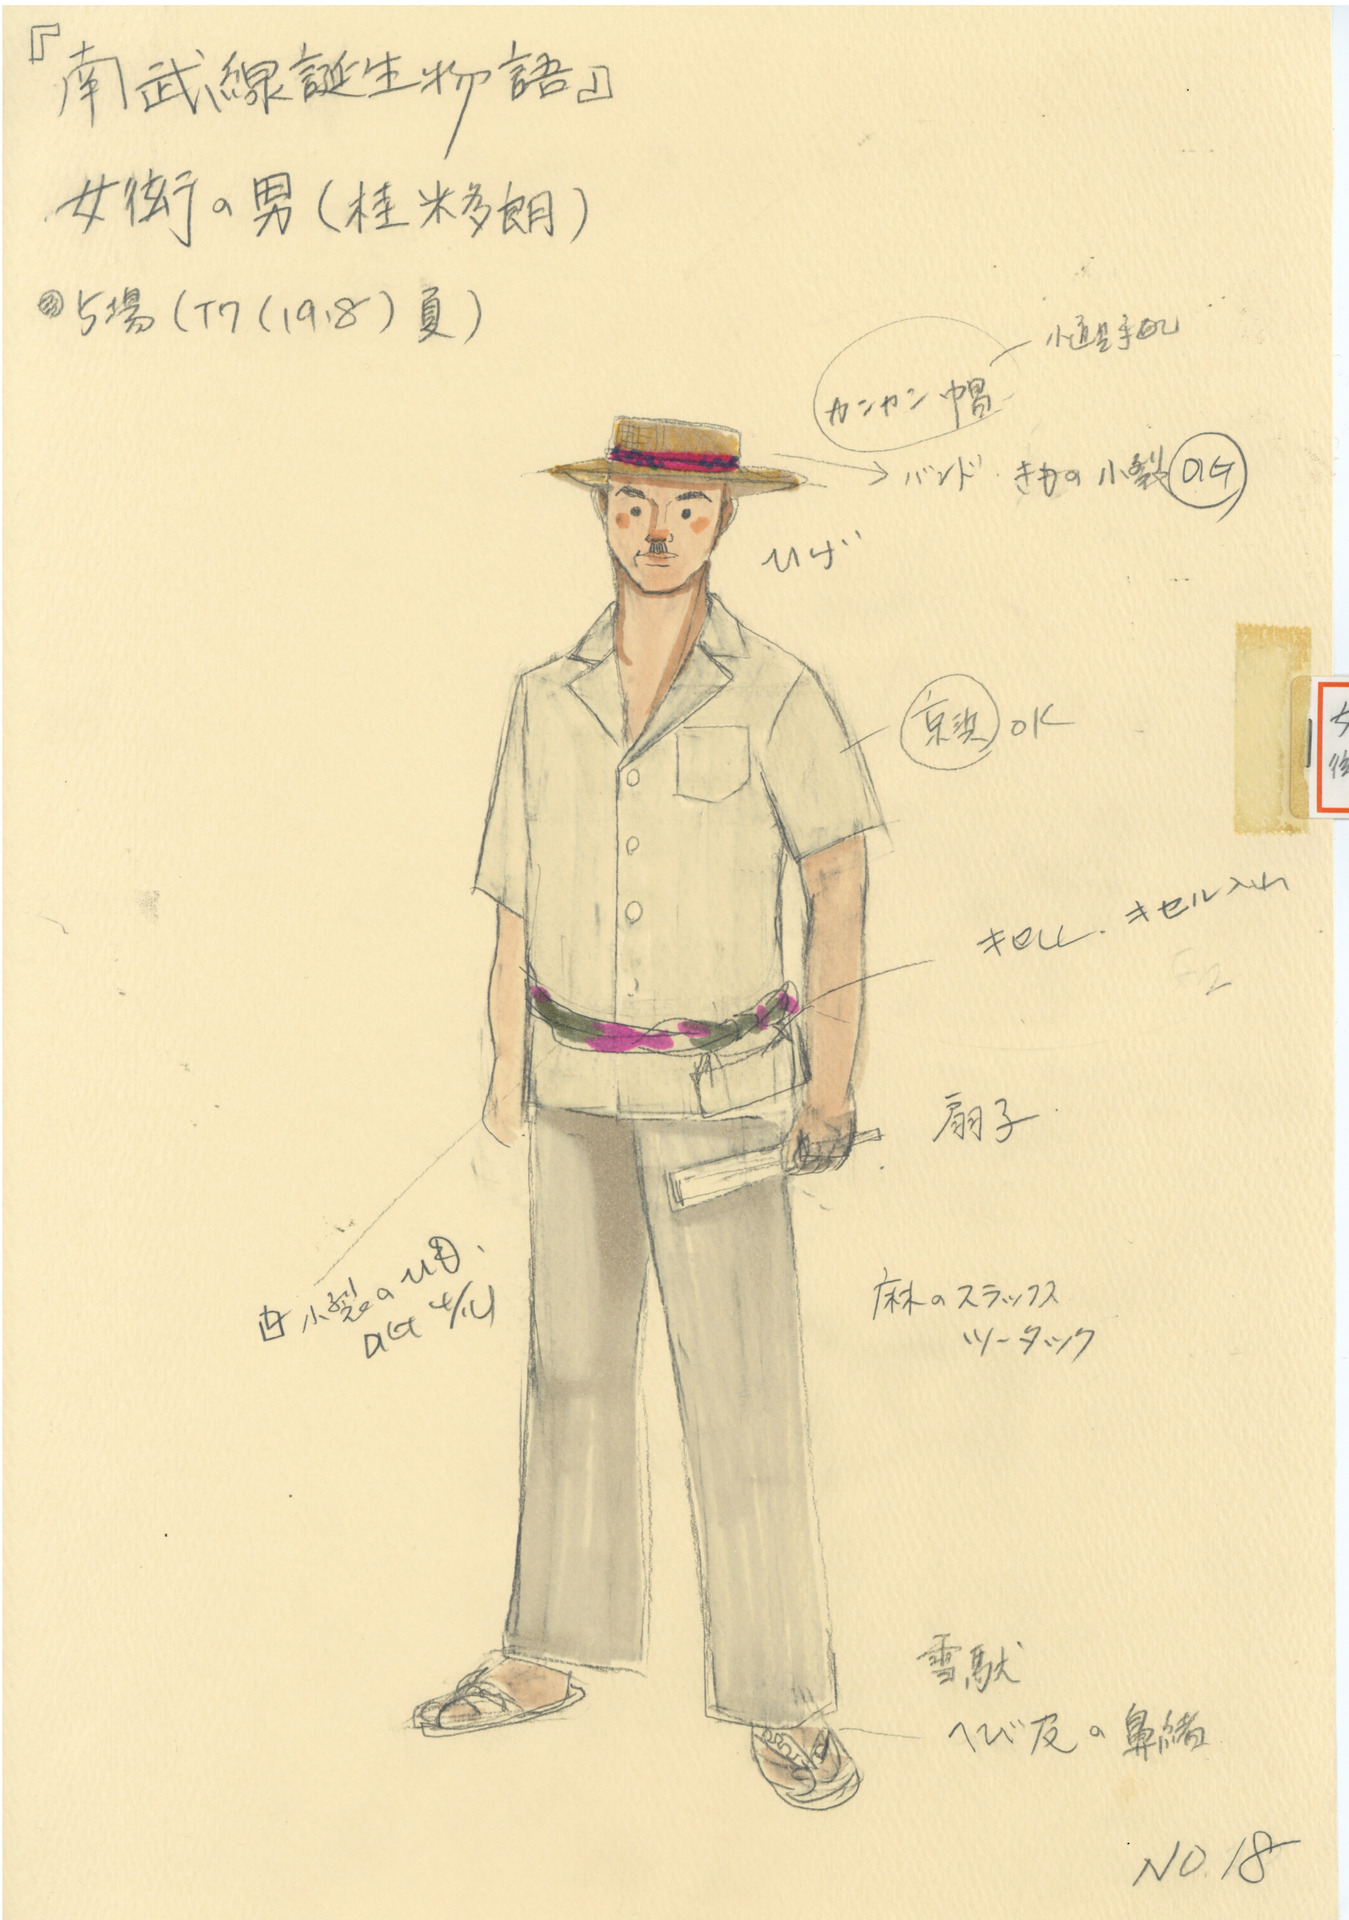 『南武線誕生物語』
女衒の男(桂米多朗)
5場(T7(1918)夏)
小道具手配
カンカン帽
バンド・きもの小裂
ひげ
京浜 OK
キセル、キセル入れ
扇子
小裂のひも
麻のスラックス
ツータック
雪駄
へび皮の鼻緒
NO.18